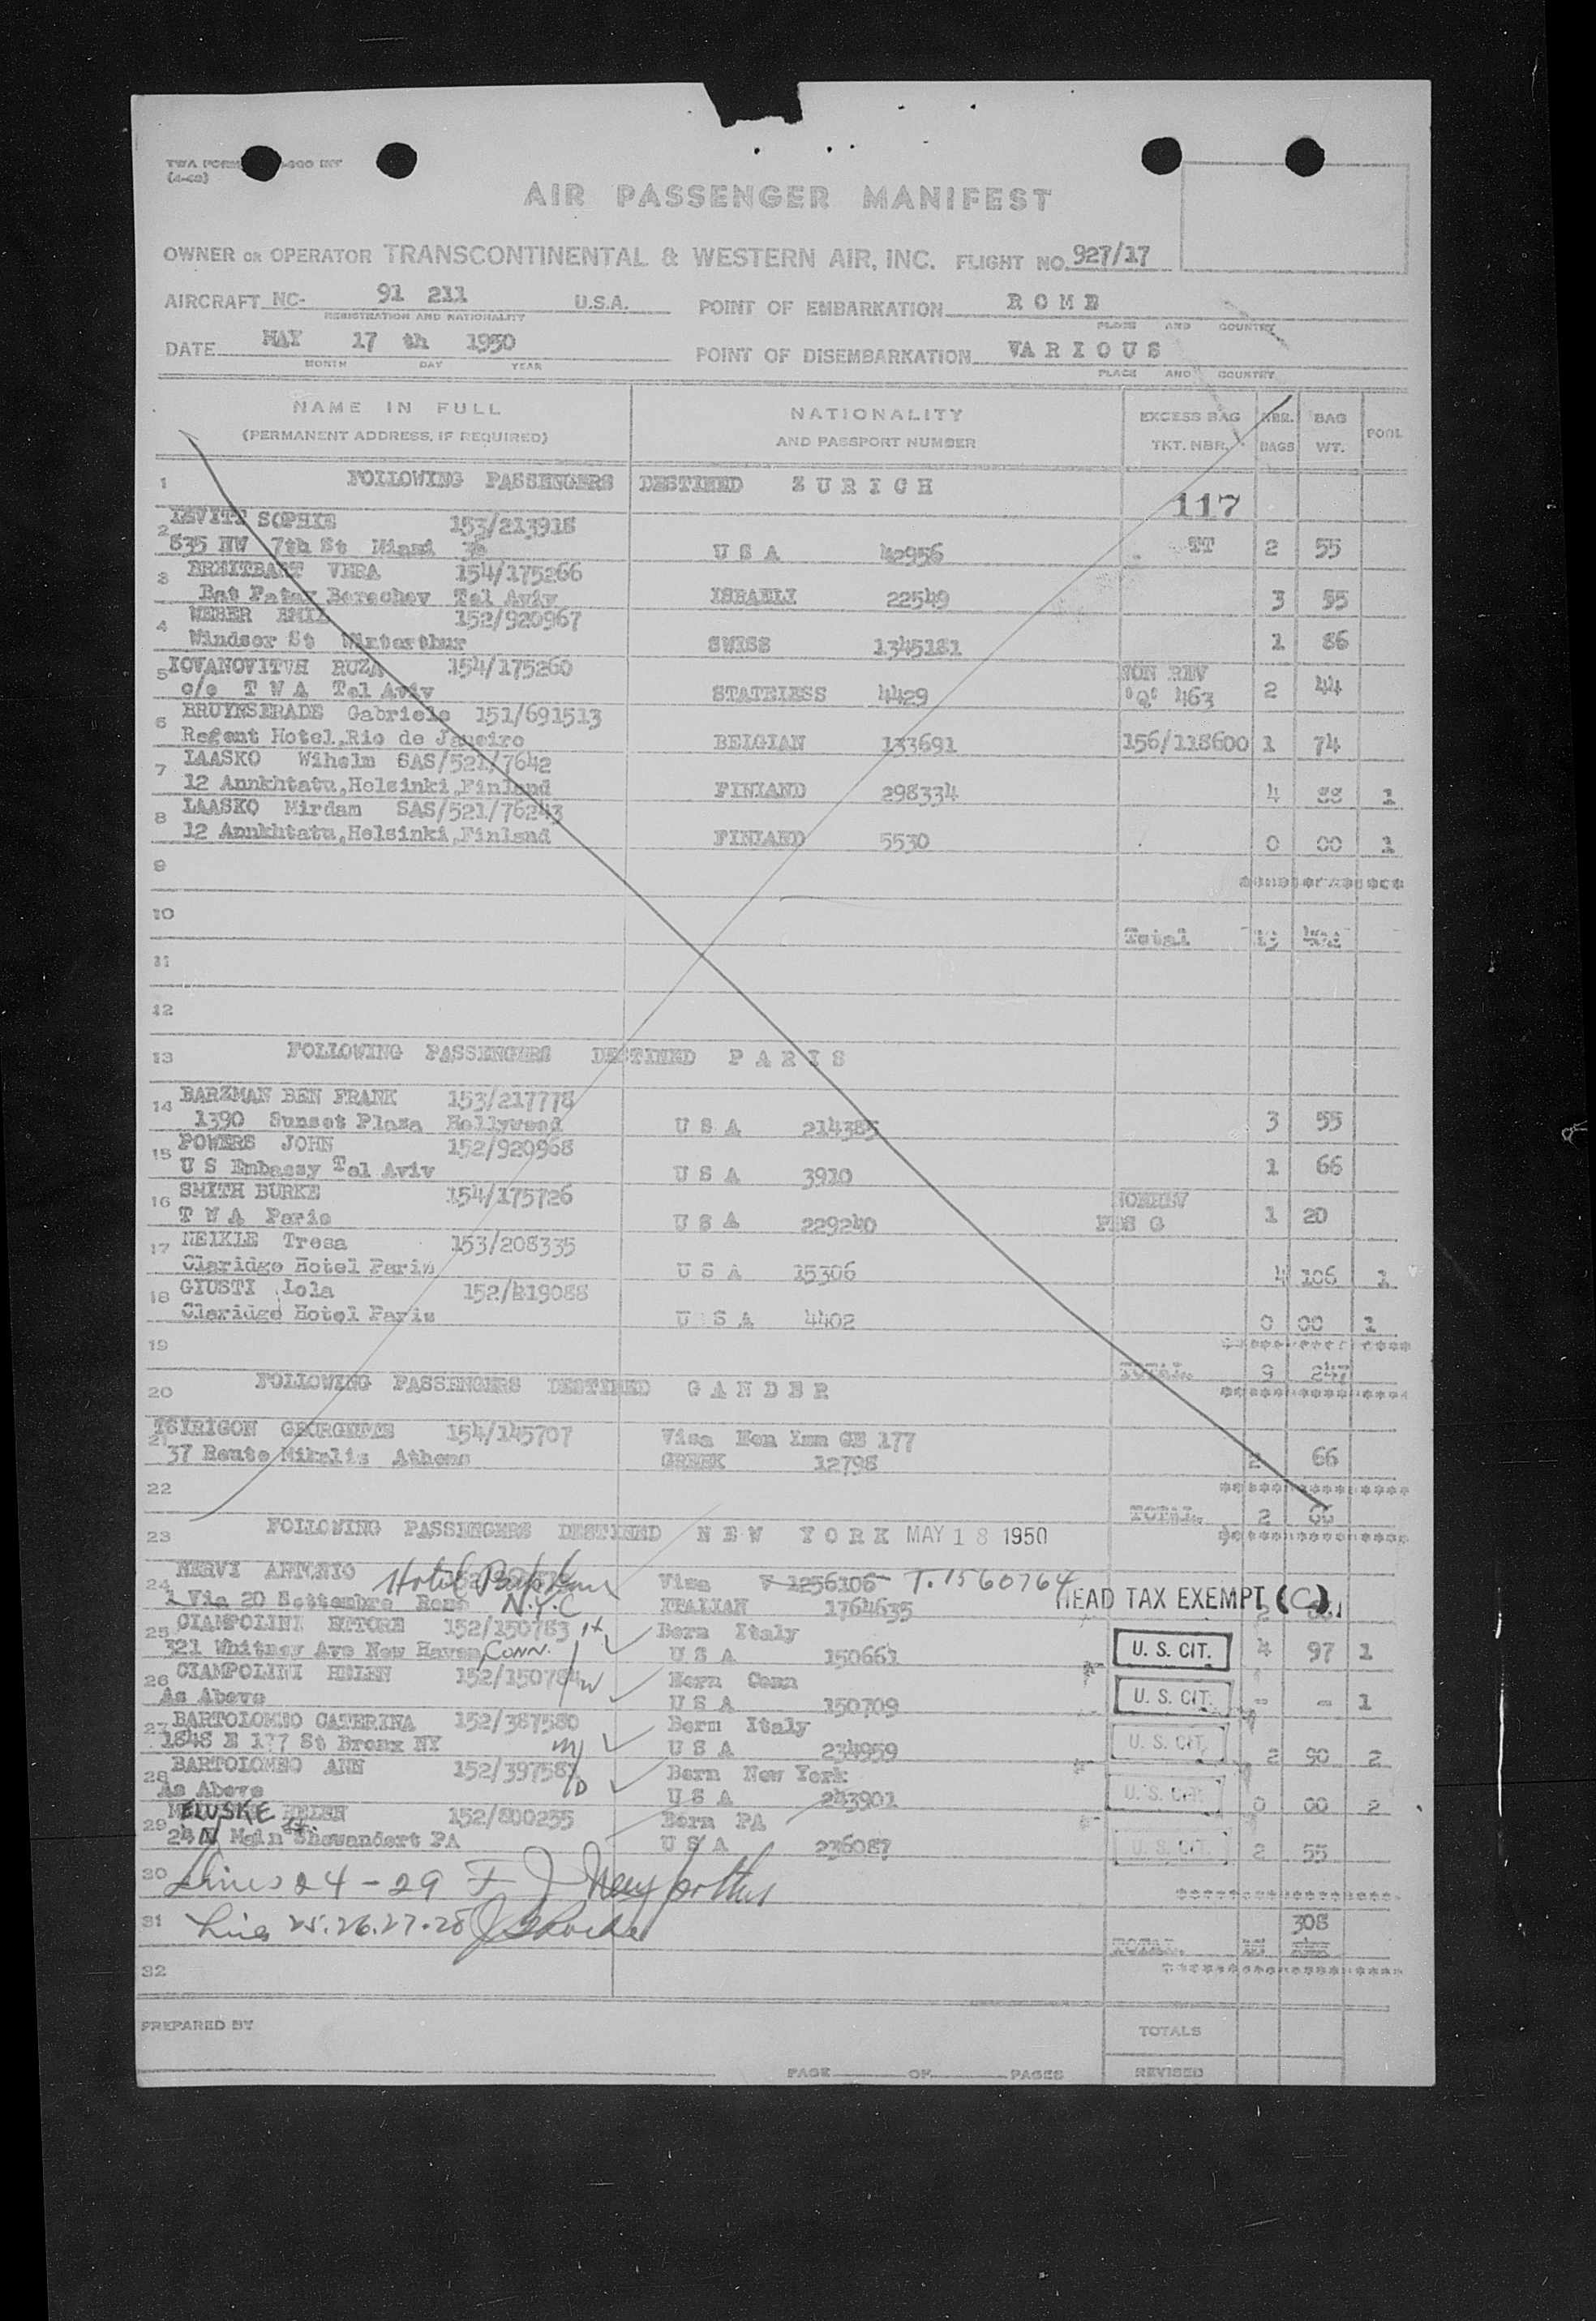 TWA FORM
AIR PASSENGER MANIFEST
OWNER OR OPERATOR TRANSCONTINENTAL & WESTERN AIR, INC. FLIGHT NO. 927/17
AIRCRAFT NC- 91 211 U.S.A. POINT OF EMBARKATION R O M E
REGISTRATION AND NATIONALITY PLACE AND COUNTRY
DATE MAY 17 th 1950 POINT OF DISEMBARKATION VA R I O U S
MONTH DAY YEAR PLACE AND COUNTRY
NAME IN FULL NATIONALITY EXCESS BAG NBR. BAG
(PERMANENT ADDRESS, IF REQUIRED) AND PASSPORT NUMBER TKT. NBR. BAGS WT. POOL
1 FOLLOWING PASSENGERS DESTINED Z U R I C H
117
2 LEVITT SOPHIE 153/213918
835 NW 7th St Miami U S A 42956 TT 2 55
3 BREITBART VERA 154/175266
Bat Berechev Tel Aviv ISRAELI 22549 3 55
4 WEBER EMIL 152/920967
Windsor St Winterthur SWISS 1345181 1 86
5 IOVANOVITVH RUZA 154/175260 NON REV
c/o T W A Tel Aviv STATELESS 4429 "Q" 463 2 44
6 BRUYNSERADE Gabriele 151/691513
Regent Hotel,Rio de Janeiro BELGIAN 133691 156/118600 1 74
7 LAASKO Wihelm SAS/521/7642
12 Annkhtatu,Helsinki,Finland FINLAND 298334 4 88 1
8 LAASKO Mirdam SAS/521/76243
12 Annkhtatu,Helsinki,Finland FINLAND 5530 0 00 1
9
10 Total 13 402
11
12
13 FOLLOWING PASSENGERS DESTINED P A R I S
14 BARZMAN BEN FRANK 153/217778
1390 Sunset Plaza Hollywood U S A 214385 3 55
15 POWERS JOHN 152/920968
U S Embassy Tel Aviv U S A 3910 1 66
16 SMITH BURKE 154/175726 NONREV
T W A Paris U S A 229240 G 1 20
17 MEIKLE Tresa 153/208335
Claridge Hotel Paris U S A 15306 4 106 1
18 GIUSTI Lola 152/419088
Claridge Hotel Paris U S A 4402 0 00 1
19
TOTAL 9 247
20 FOLLOWING PASSENGERS DESTINED G A N D E R
21 TSIRIGON GEORGETTE 154/145707 Visa Non Imm GE 177
37 Route Mikalis Athens GREEK 12798 2 66
22
TOTAL 2 66
23 FOLLOWING PASSENGERS DESTINED N E W Y O R K MAY 18 1950
24 NERVI ANTONIO Hotel N.Y.C Visa V 1256106 T.1560764
1 Via 20 Settembre Rome ITALIAN 1764635 HEAD TAX EXEMPT (C)
25 CIAMPOLINI ETTORE 152/150783 H Born Italy
321 Whitney Ave New Haven, CONN. U S A 150661 U. S. CIT. 4 97 1
26 CIAMPOLINI HELEN 152/150784 W Born Conn
As Above U S A 150709 U. S. CIT. - - 1
27 BARTOLOMEO CATERINA 152/387580 M Born Italy
1848 E 177 St Bronx NY U S A 234959 U. S. CIT. 2 90 2
28 BARTOLOMEO ANN 152/397581 D Born New York
As Above U S A 243901 U. S. CIT. 0 00 2
29 MELUSKE HELEN 152/800255 Born PA
24 N Main St. Shewandort PA U S A 236087 U. S. CIT. 2 55
30 Lines 24 - 29 F J
31 Line 25.26.27.28 308
TOTAL
32
PREPARED BY TOTALS
PAGE OF PAGES REVISED